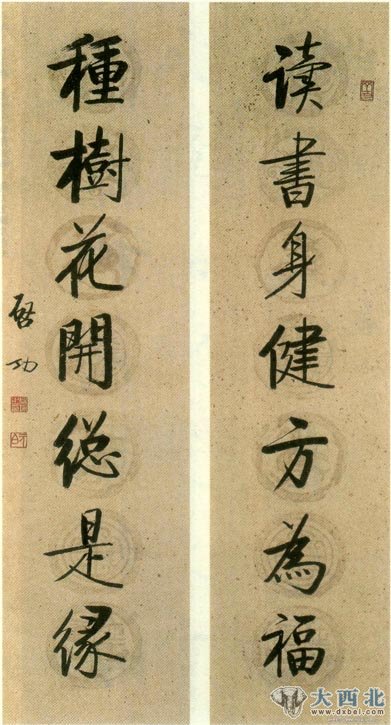 读書身健方為福
種樹花開總是緣
啓功
大西北
www.dxbei.com